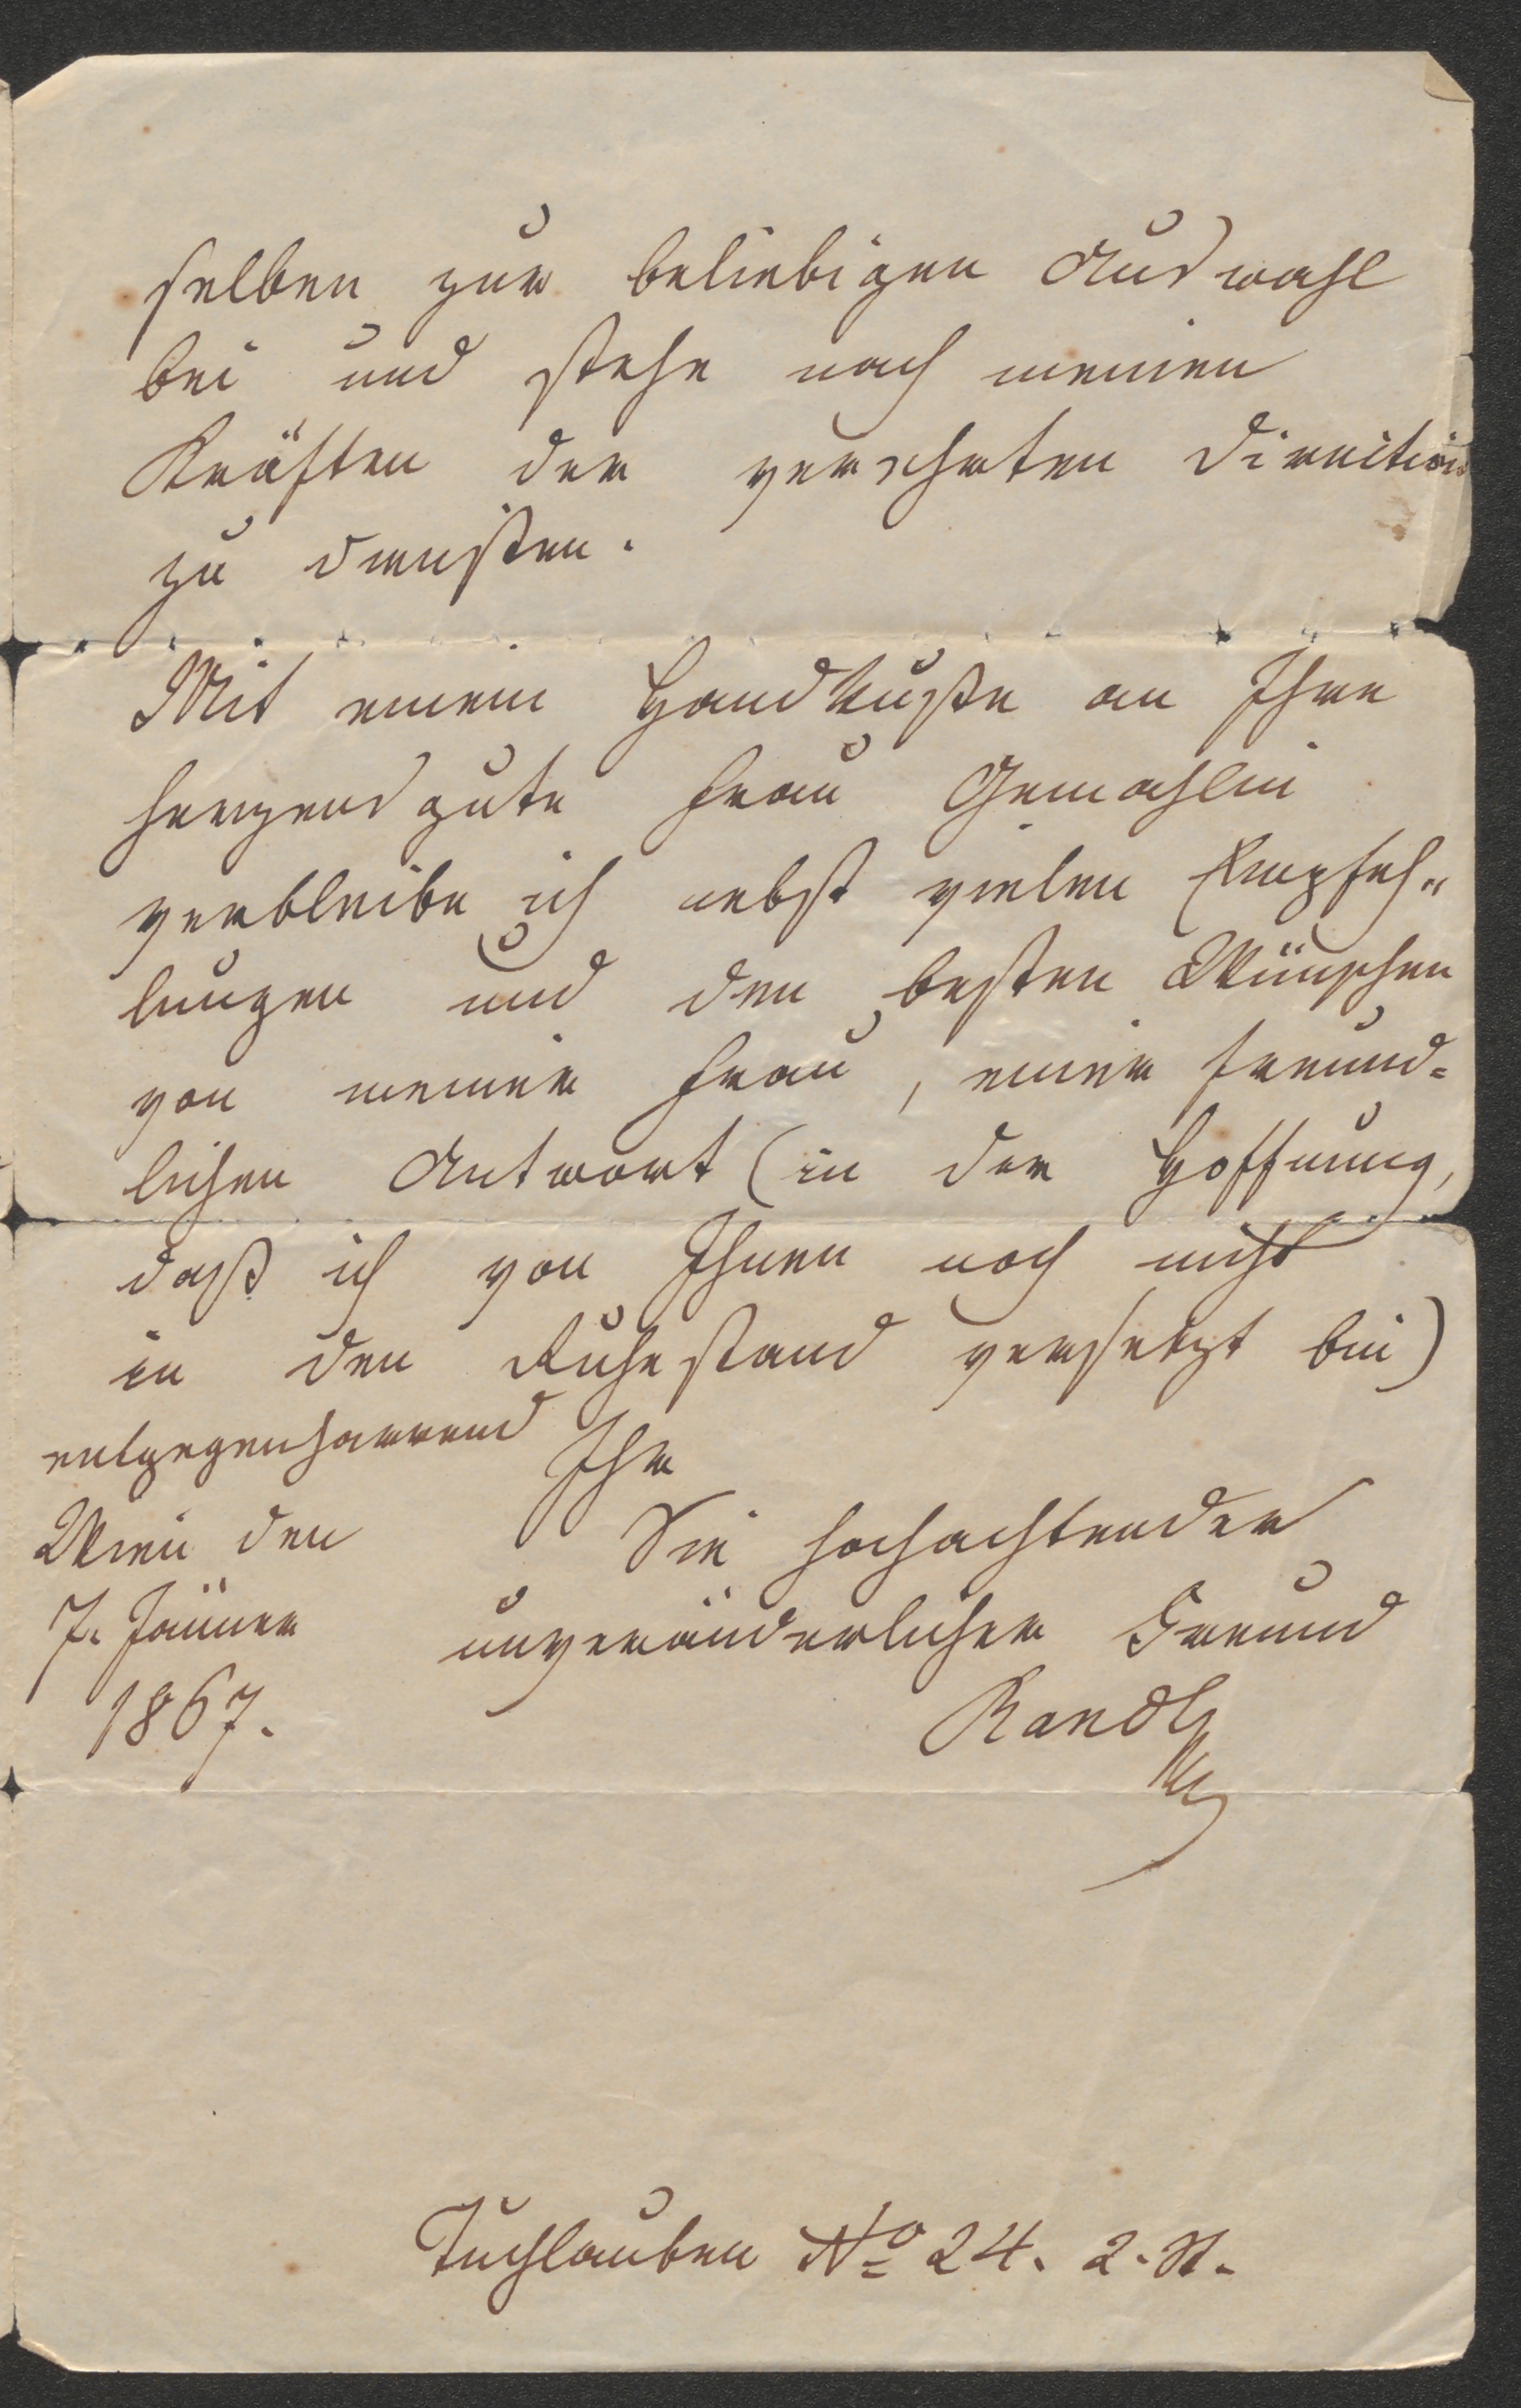 selben zur beliebigen Auswahl
bei und stehe nach meinen
Kräften der verehrten Direction
zu diensten.
Mit einem Handkuße an Ihre
herzensgute Frau Gemahlin
verbleibe ich nebst vielen Empfeh„
lungen und den besten Wünschen
von meiner Frau, einer freund=
lichen Antwort (in der Hoffnung,
daß ich von Ihnen noch nicht
in den Ruhestand versetzt bin)
entgegenharrend
Ihr
Wien den
Sie hochachtender
7. Jänner
unveränderlicher Freund
1867.
Randl
Tuchlauben No 24. 2. St.